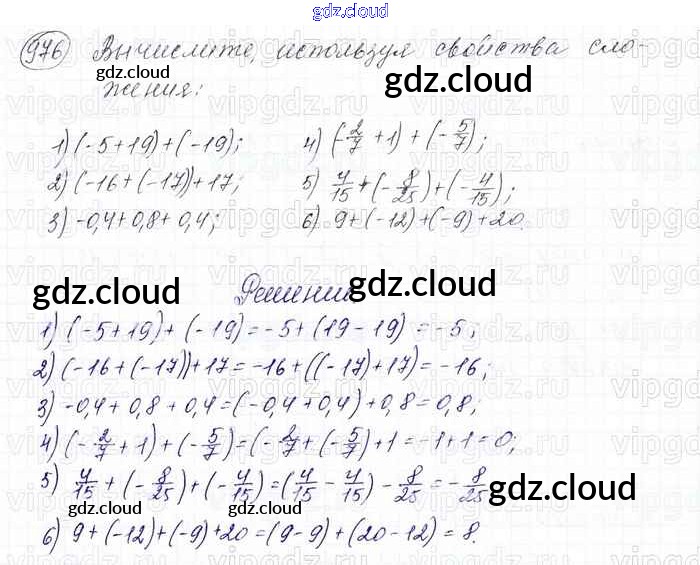 gdz.cloud
976 Вычислите, используя свойства сло-
жения:
gdz.cloud gdz.cloud
1) (-5+19)+(-19); 4) (-2/7 + 1) + (-5/7);
2) (-16+(-17))+17; 5) 4/15 + (-8/25) + (-4/15);
3) -0,4+0,8+0,4; 6) 9+(-12)+(-9)+20.
gdz.cloud Решение gdz.cloud
1) (-5+19)+(-19)=-5+(19-19)=-5;
2) (-16+(-17))+17=-16+((-17)+17)=-16;
3) -0,4+0,8+0,4=(-0,4+0,4)+0,8=0,8;
4) (-2/7+1)+(-5/7)=(-2/7+(-5/7)+1=-1+1=0;
5) 4/15+(-8/25)+(-4/15)=(4/15-4/15)-8/25=-8/25
gdz.cloud gdz.cloud
6) 9+(-12)+(-9)+20=(9-9)+(20-12)=8.
gdz.cloud